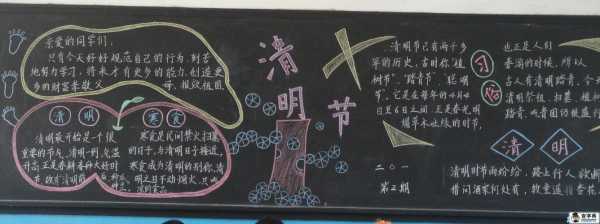 亲爱的同学们,
只有今天好好规范自己的行为,刻苦
地努力学习,将来才有更多的能力,创造更
多的财富孝敬父母,报效祖国。
清明
清明最开始是个很
重要的节气,清明一到,气温
升高,正是春耕春种的大好时
节,故有"清明前
寒食
寒食是民间禁火扫墓
的日子,与清明日子接近,
寒食成为清明的别称,清
明之日不动烟火,只
清明节
清明节已有两千多
年的历史,古时称"植
树节"、"踏青节"、"聪明
节"。它是在每年的4月4
日至6日之间,正是春光明
媚草木吐绿的时节,
二〇一
第2期
习俗
也正是人们
春游的时候,所以
古人有清明踏青,
清明祭祖、扫墓、植树
踏青、
清明
清明时节雨纷纷,路上行人欲断
借问酒家何处有,牧童遥指杏花